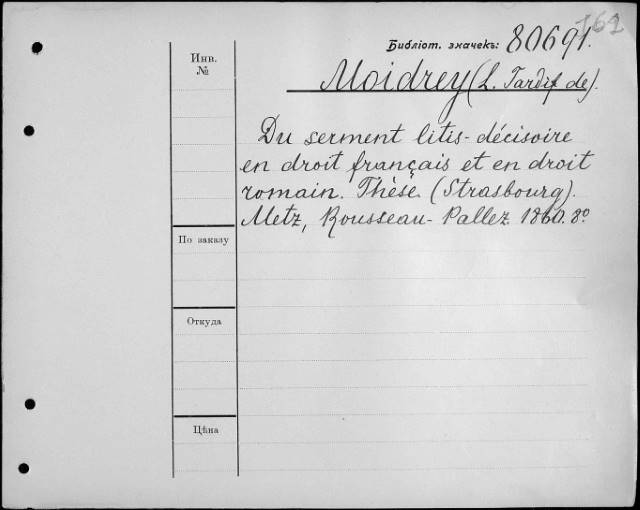 762
Библіот. значекъ: 80691.
Инв.
№
Moidrey (L. Tardif de).
Du serment litis-décisoire
en droit français et en droit
romain. Thèse (Strasbourg).
Metz, Rousseau-Pallez 1860. 8º
По заказу
Откуда
Цѣна